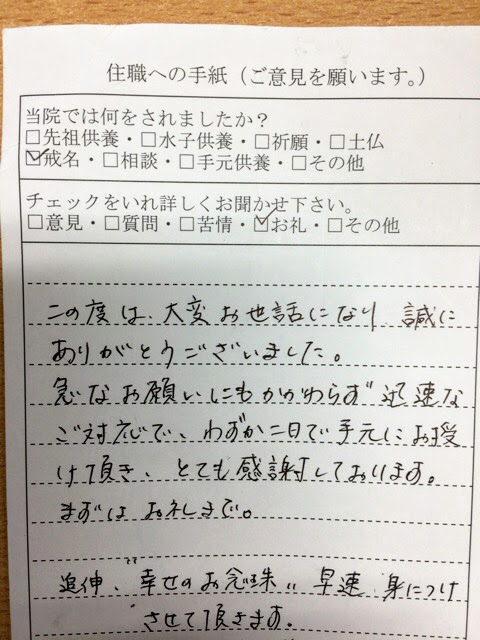 住職への手紙（ご意見を願います。）
当院では何をされましたか？
□先祖供養・□水子供養・□祈願・□土仏
☑戒名・□相談・□手元供養・□その他
チェックをいれ詳しくお聞かせ下さい。
□意見・□質問・□苦情・☑お礼・□その他
この度は、大変お世話になり 誠に
ありがとうございました。
急なお願いにもかかわらず 迅速な
ご対応で、わずか二日で手元にお授
け頂き、とても感謝しております。
まずは お礼まで。
追伸、"幸せのお念珠" 早速 身につけ
させて頂きます。